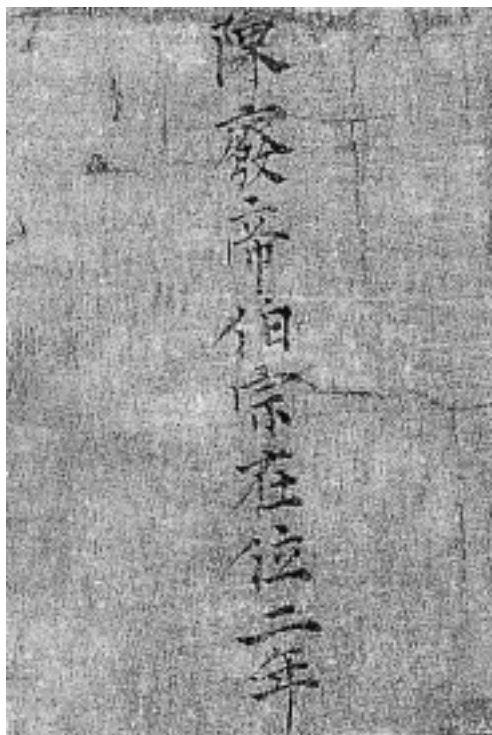 陳廢帝伯宗在位二年